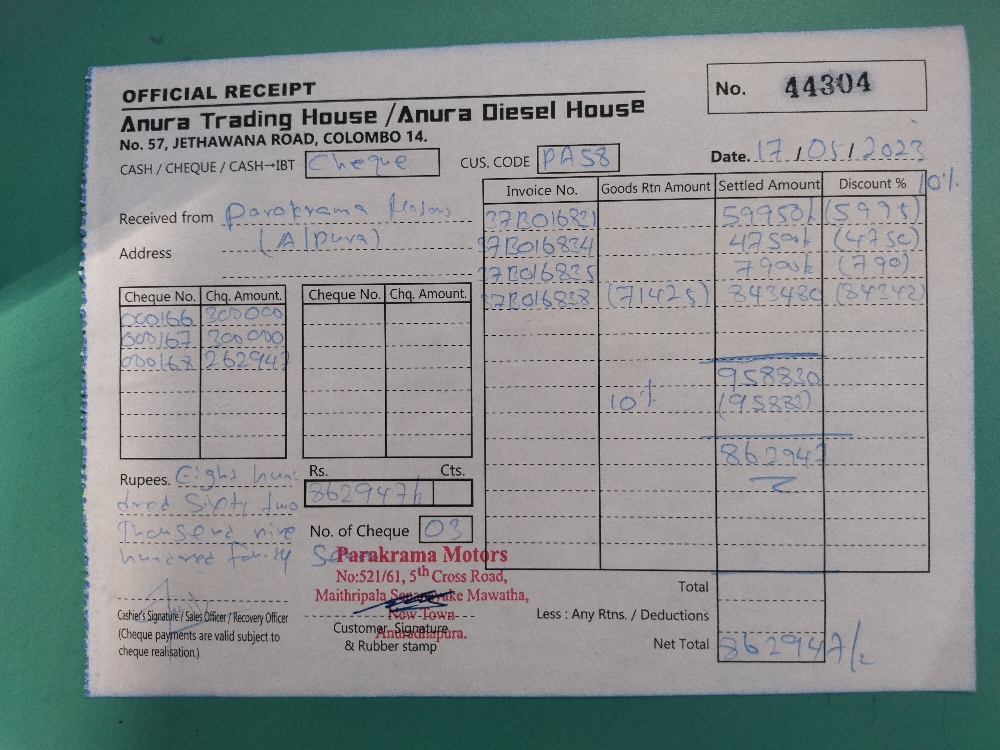 OFFICIAL RECEIPT
No. 44304
Anura Trading House / Anura Diesel House
No. 57, JETHAWANA ROAD, COLOMBO 14.
CASH / CHEQUE / CASH→IBT Cheque CUS. CODE PA58 Date. 17 / 05 / 2023
Invoice No. Goods Rtn Amount Settled Amount Discount % 10%
Received from Parakrama
Address (A/pura)
37B016821 59950/- (5995)
37B016824 47500/- (4750)
37B016825 7900/- (790)
37B016828 (71425) 843480
Cheque No. Chq. Amount. Cheque No. Chq. Amount.
000166 300000
000167 300000
000168 262947
958830
10% (95883)
862947
Rupees. Eight hun
dred Sixty two
Thousand nine
hundred forty
Rs. Cts.
862947/-
No. of Cheque 03
Parakrama Motors
No:521/61, 5th Cross Road,
Maithripala Senanayake Mawatha,
New Town
Anuradhapura.
Cashier's Signature / Sales Officer / Recovery Officer
(Cheque payments are valid subject to
cheque realisation.)
Customer Signature
& Rubber stamp
Total
Less : Any Rtns. / Deductions
Net Total 862947/-